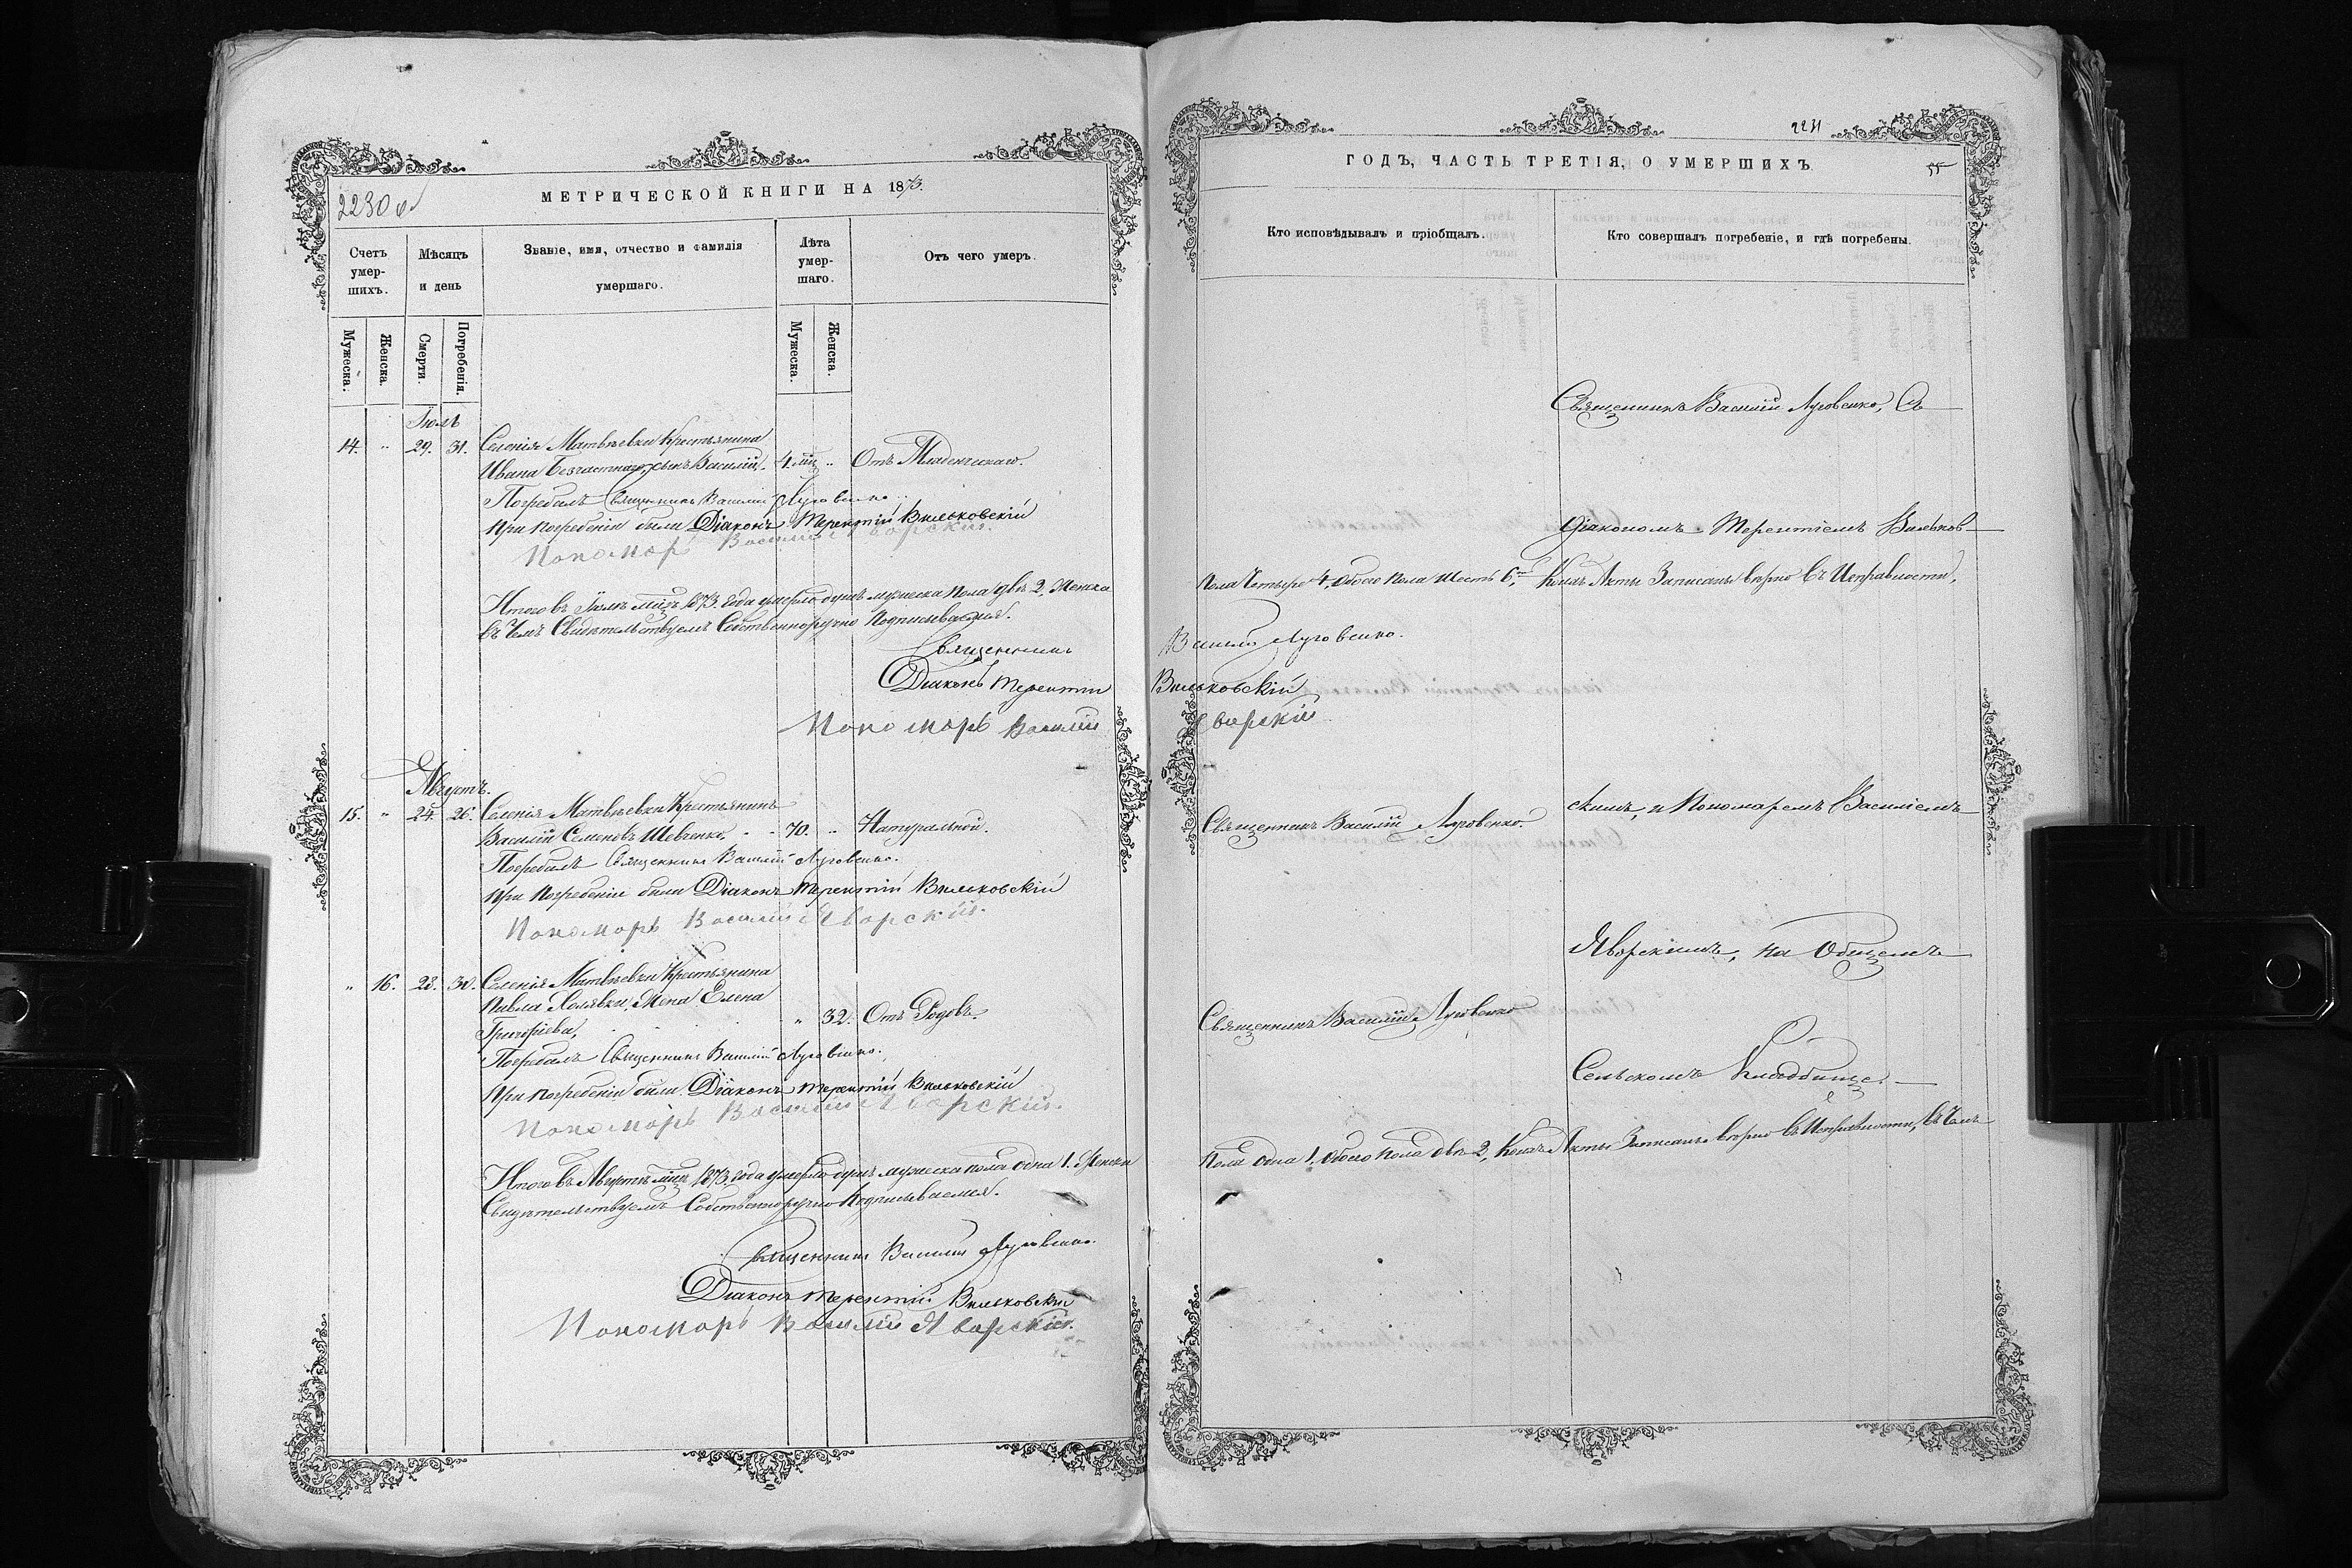 2230 об
МЕТРИЧЕСКОЙ КНИГИ НА 1873.
Счетъ умер-шихъ.
Мѣсяцъ и день
Званіе, имя, отчество и фамилія умершаго.
Лѣта умер-шаго.
Отъ чего умеръ.
Мужеска.
Женска.
Смерти.
Погребенія.
Мужеска.
Женска.
Іюль
14. " 29. 31. Селенія Матвѣевки Крестьянина
Ивана Безчастнаго, сынъ Василій. 4. мц " Отъ Младенческаго.
Погребалъ Священникъ Василій Луговенко
При погребеніи были Діаконъ Терентій Вильковскій
Пономарь Василій Яворскій.
Итого въ Іюлѣ мцѣ 1873. года умерло душъ мужеска пола двѣ 2, Женска
въ чемъ Свидѣтельствуемъ Собственноручно Подписываемся.
Священникъ
Діаконъ Терентій
Пономарь Василій
Августъ.
15. " 24. 26. Селенія Матвѣевки Крестьянинъ
Василій Семеновъ Шевченко, 70. " Натуральной.
Погребалъ Священникъ Василій Луговенко.
При Погребеніи были Діаконъ Терентій Вильковскій
Пономарь Василій Яворскій.
" 16. 28. 30. Селенія Матвѣевки Крестьянина
Павла Холявки, Жена Елена
Григоріева, " 32. Отъ Родовъ.
Погребалъ Священникъ Василій Луговенко.
При погребеніи были Діаконъ Терентій Вильковскій
Пономарь Василій Яворскій.
Итого въ Августѣ мцѣ 1873. года умерло душъ мужеска пола одна 1. Женска
Свидѣтельствуемъ Собственноручно Подписываемся.
Священникъ Василій Луговенко.
Діаконъ Терентій Вильковскій
Пономарь Василій Яворскій.
2231
ГОДЪ, ЧАСТЬ ТРЕТІЯ, О УМЕРШИХЪ
55
Кто исповѣдывалъ и пріобщалъ.
Кто совершалъ погребеніе, и гдѣ погребены.
Священникъ Василій Луговенко, Съ
Діакономъ Терентіемъ Вильков-
Пола Четыре 4, Обоего Пола Шесть 6, Коихъ Акты Записаны вѣрно въ Исправности,
Василій Луговенко.
Вильковскій
Яворскій
Священникъ Василій Луговенко.
скимъ, и Пономаремъ Василіемъ
Яворскимъ, на Общемъ
Священникъ Василій Луговенко
Сельскомъ Кладбище.
Пола одна 1. обоего пола двѣ 2, Коихъ Акты Записаны вѣрно въ Исправности, въ Чемъ